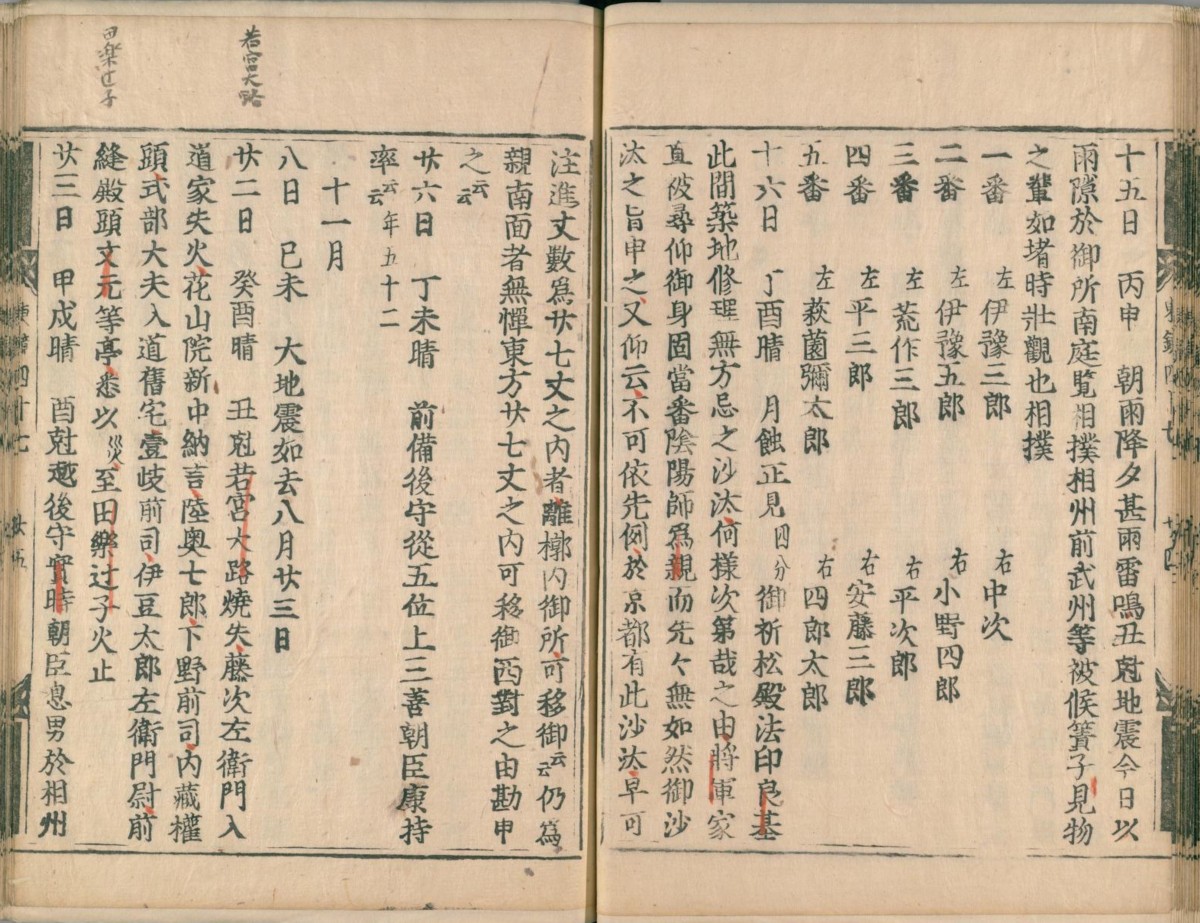 十五日　丙申　朝雨降夕甚雨雷鳴丑尅地震今日以
雨隙於御所南庭覧相撲相州前武州等被候簀子見物
之輩如堵時壮觀也相撲
一番　左　伊豫三郎　右　中次
二番　左　伊豫五郎　右　小野四郎
三番　左　荒作三郎　右　平次郎
四番　左　平三郎　右　安藤三郎
五番　左　萩薗彌太郎　右　四郎太郎
十六日　丁酉晴　月蝕正見四分御祈松殿法印良基
此間築地修理無方忌之沙汰何様次第哉之由將軍家
直彼尋仰御身固當番陰陽師爲親而先々無如然御沙
汰之旨申之又仰云不可依先例於京都有此沙汰早可
注進丈數爲廿七丈之内者離槨内御所可移御云云仍爲
親南面者無憚東方廿七丈之内可移御西對之由勘申
之云云
廿六日　丁未晴　前備後守從五位上三善朝臣康持
率云云年五十二
十一月
八日　己未　大地震如去八月廿三日
廿二日　癸酉晴　丑尅若宮大路燒失藤次左衛門入
道家失火花山院新中納言陸奥七郎下野前司内藏權
頭式部大夫入道舊宅壹岐前司伊豆太郎左衛門尉前
縫殿頭文元等亭悉以災至田樂辻子火止
廿三日　甲戌晴　酉尅越後守實時朝臣息男於相州
若宮大路
田楽辻子